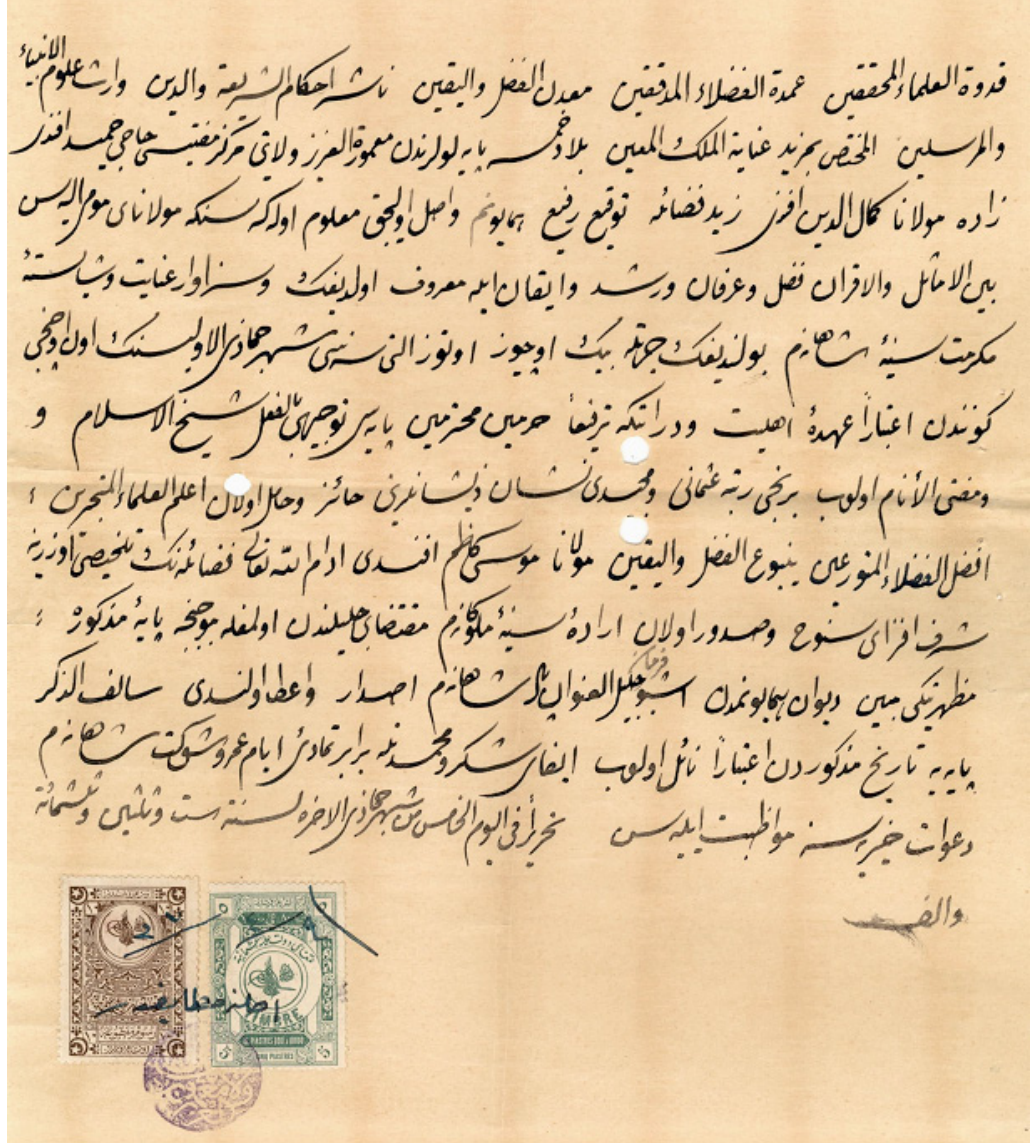 قدوة العلماء المحققين عمدة الفضلاء المدققين معدن الفضل واليقين ناشر احكام الشريعة والدين وارث علوم الانبياء
والمرسلين المختص بمزيد عناية الملك المعين بلاد خمسه پايه لولرندن معمورة العزيز ولايتى مركز مفتيسى حاجى حميد افندى
زاده مولانا كمال الدين افندى زيد فضائله توقيع رفيع همايونم واصل اوليجق معلوم اوله كه سنكه مولاناى مومى اليه سن
بين الاماثل والاقران فضل وعرفان ورشد وايقان ايله معروف اولديغك وسزاوار عنايت وشايستۀ
مكرمت سنيۀ شاهانه م بولنديغك جهتله بيك اوچيوز اوتوز التى سنه سى شهر جمادى الاوليسنك اون اوچنجى
كونندن اعتباراً عهدۀ اهليت ودرايتكه ترفيعاً حرمين محترمين پايه سى توجيهى بالفعل شيخ الاسلام و
ومفتى الأنام اولوب برنجى رتبه عثمانى ومجيدى نشان ذيشانلرينى حائز وحامل اولان اعلم العلماء المتبحرين
افضل الفضلاء المتورعين ينبوع الفضل واليقين مولانا موسى كاظم افندى ادام الله تعالى فضائله نك تلخيصى اوزرينه
شرف افزاى سنوح وصدور اولان ارادۀ سنيۀ ملوكانه م مقتضاى جليلندن اولمغله موجبنجه پايۀ مذكوره
مظهريتكى مبين ديوان همايونمدن اشبو جليل العنوان فرمان شاهانه م اصدار واعطا اولندى سالف الذكر
پايه يه تاريخ مذكوردن اعتباراً نائل اولوب ايفاى شكر ومحمدتله برابر تمادئ ايام عمر وشوكت شاهانه م
دعوات خيريه سنه مواظبت ايليه سن تحريراً فى اليوم الخامس من شهر جمادى الاخره لسنة ست وثلثين وثلثمائة
والف
TIMBRE
CINQ PIASTRES